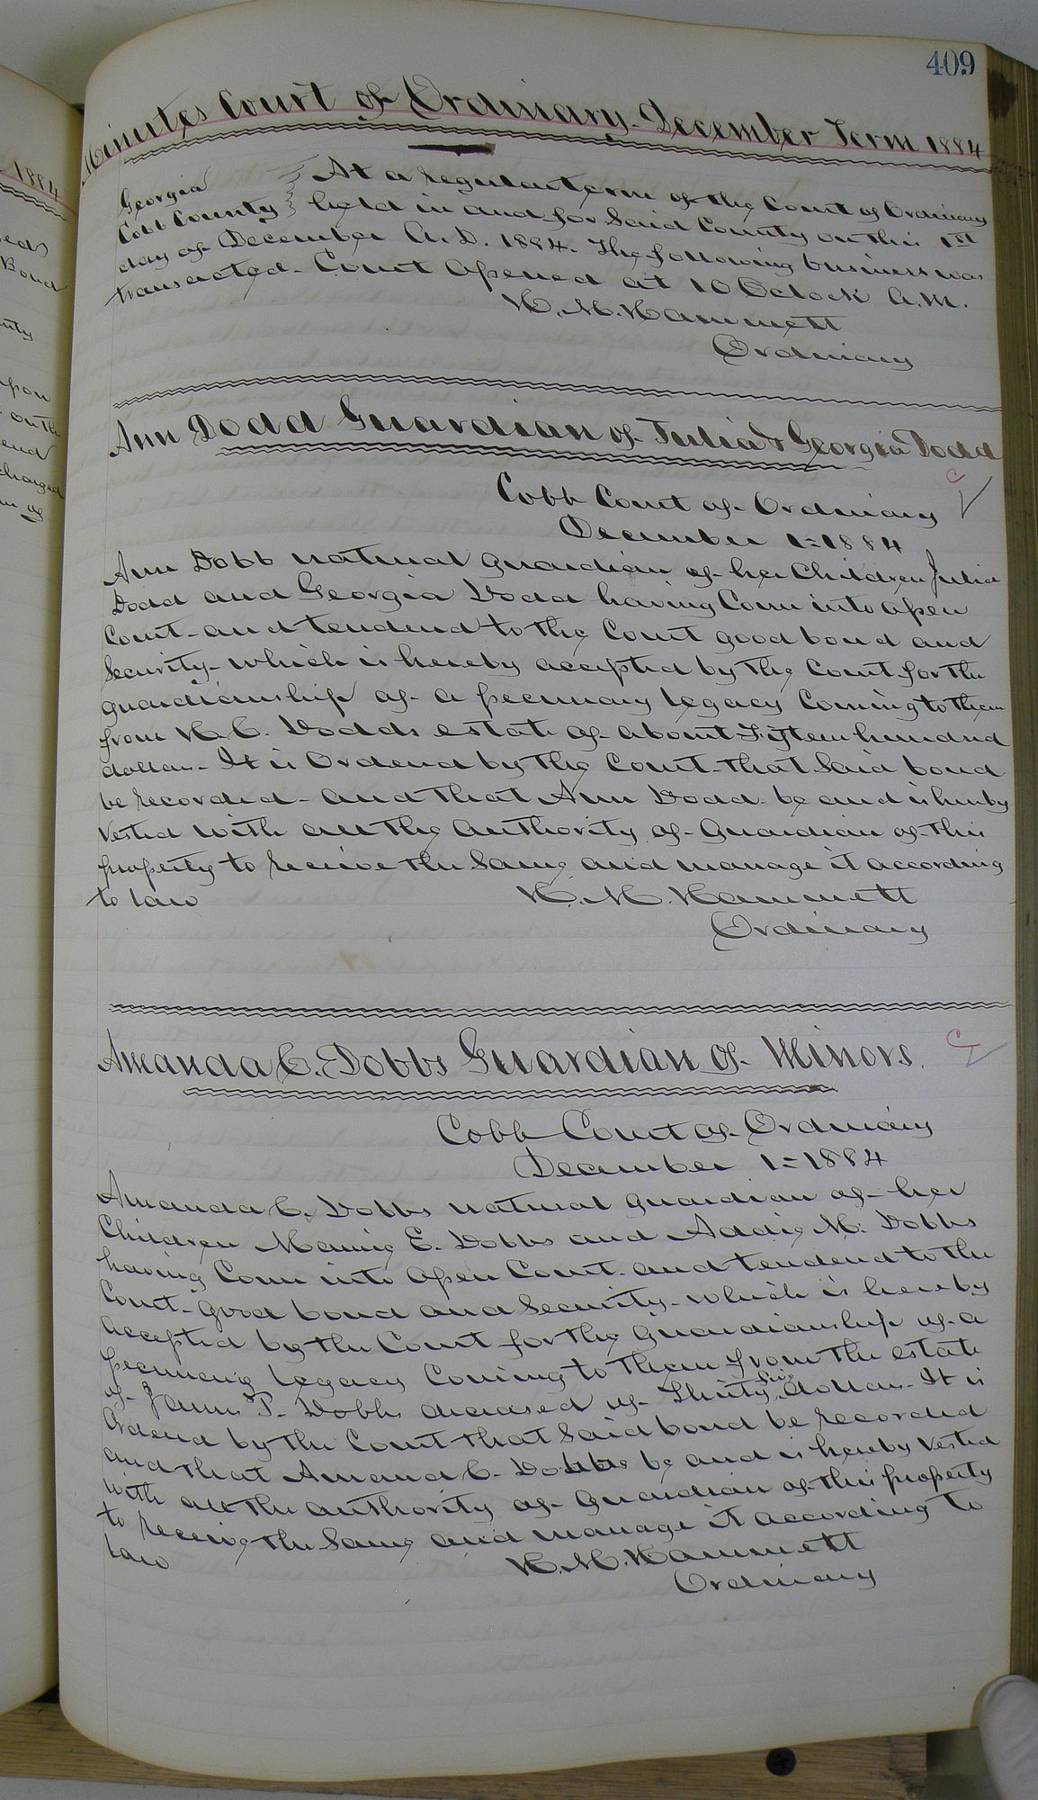 409
Minutes Court of Ordinary December Term 1884
Georgia
Cobb County
At a regular term of the Court of Ordinary
held in and for Said County on this 1st
day of December A.D. 1884. The following business was
transacted. Court Opened at 10 Oclock A.M.
H. M. Hammett
Ordinary
Ann Dodd Guardian of Julia & Georgia Dodd
Cobb Court of Ordinary
December 1=1884
Ann Dobb natural guardian of her Children Julia
Dodd and Georgia Dodd having Come into open
Court and tendered to the Court good bond and
Security which is hereby accepted by the Court for the
guardianship of a pecuniary legacy Coming to them
from Dodds estate of about Fifteen hundred
dollars. It is Ordered by the Court that Said bond
be recorded and that Ann Dodd be and is hereby
Vested with all the authority of Guardian of this
property to receive the Same and manage it according
to law
H. M. Hammett
Ordinary
Amanda C. Dobbs Guardian of Minors.
Cobb Court of Ordinary
December 1=1884
Amanda C. Dobbs natural guardian of her
Children Mamie E. Dobbs and Addie M. Dobbs
having Come into Open Court and tendered to the
Court good bond and Security which is hereby
accepted by the Court for the Guardianship of a
pecuniary legacy Coming to them from the estate
of James P. Dobbs deceased of Thirty five dollars. It is
Ordered by the Court that Said bond be recorded
and that Amand C. Dobbs be and is hereby Vested
with all the authority of Guardian of this property
to receive the Same and manage it according to
law
H. M. Hammett
Ordinary
1884
Bond
upon
on the
charged